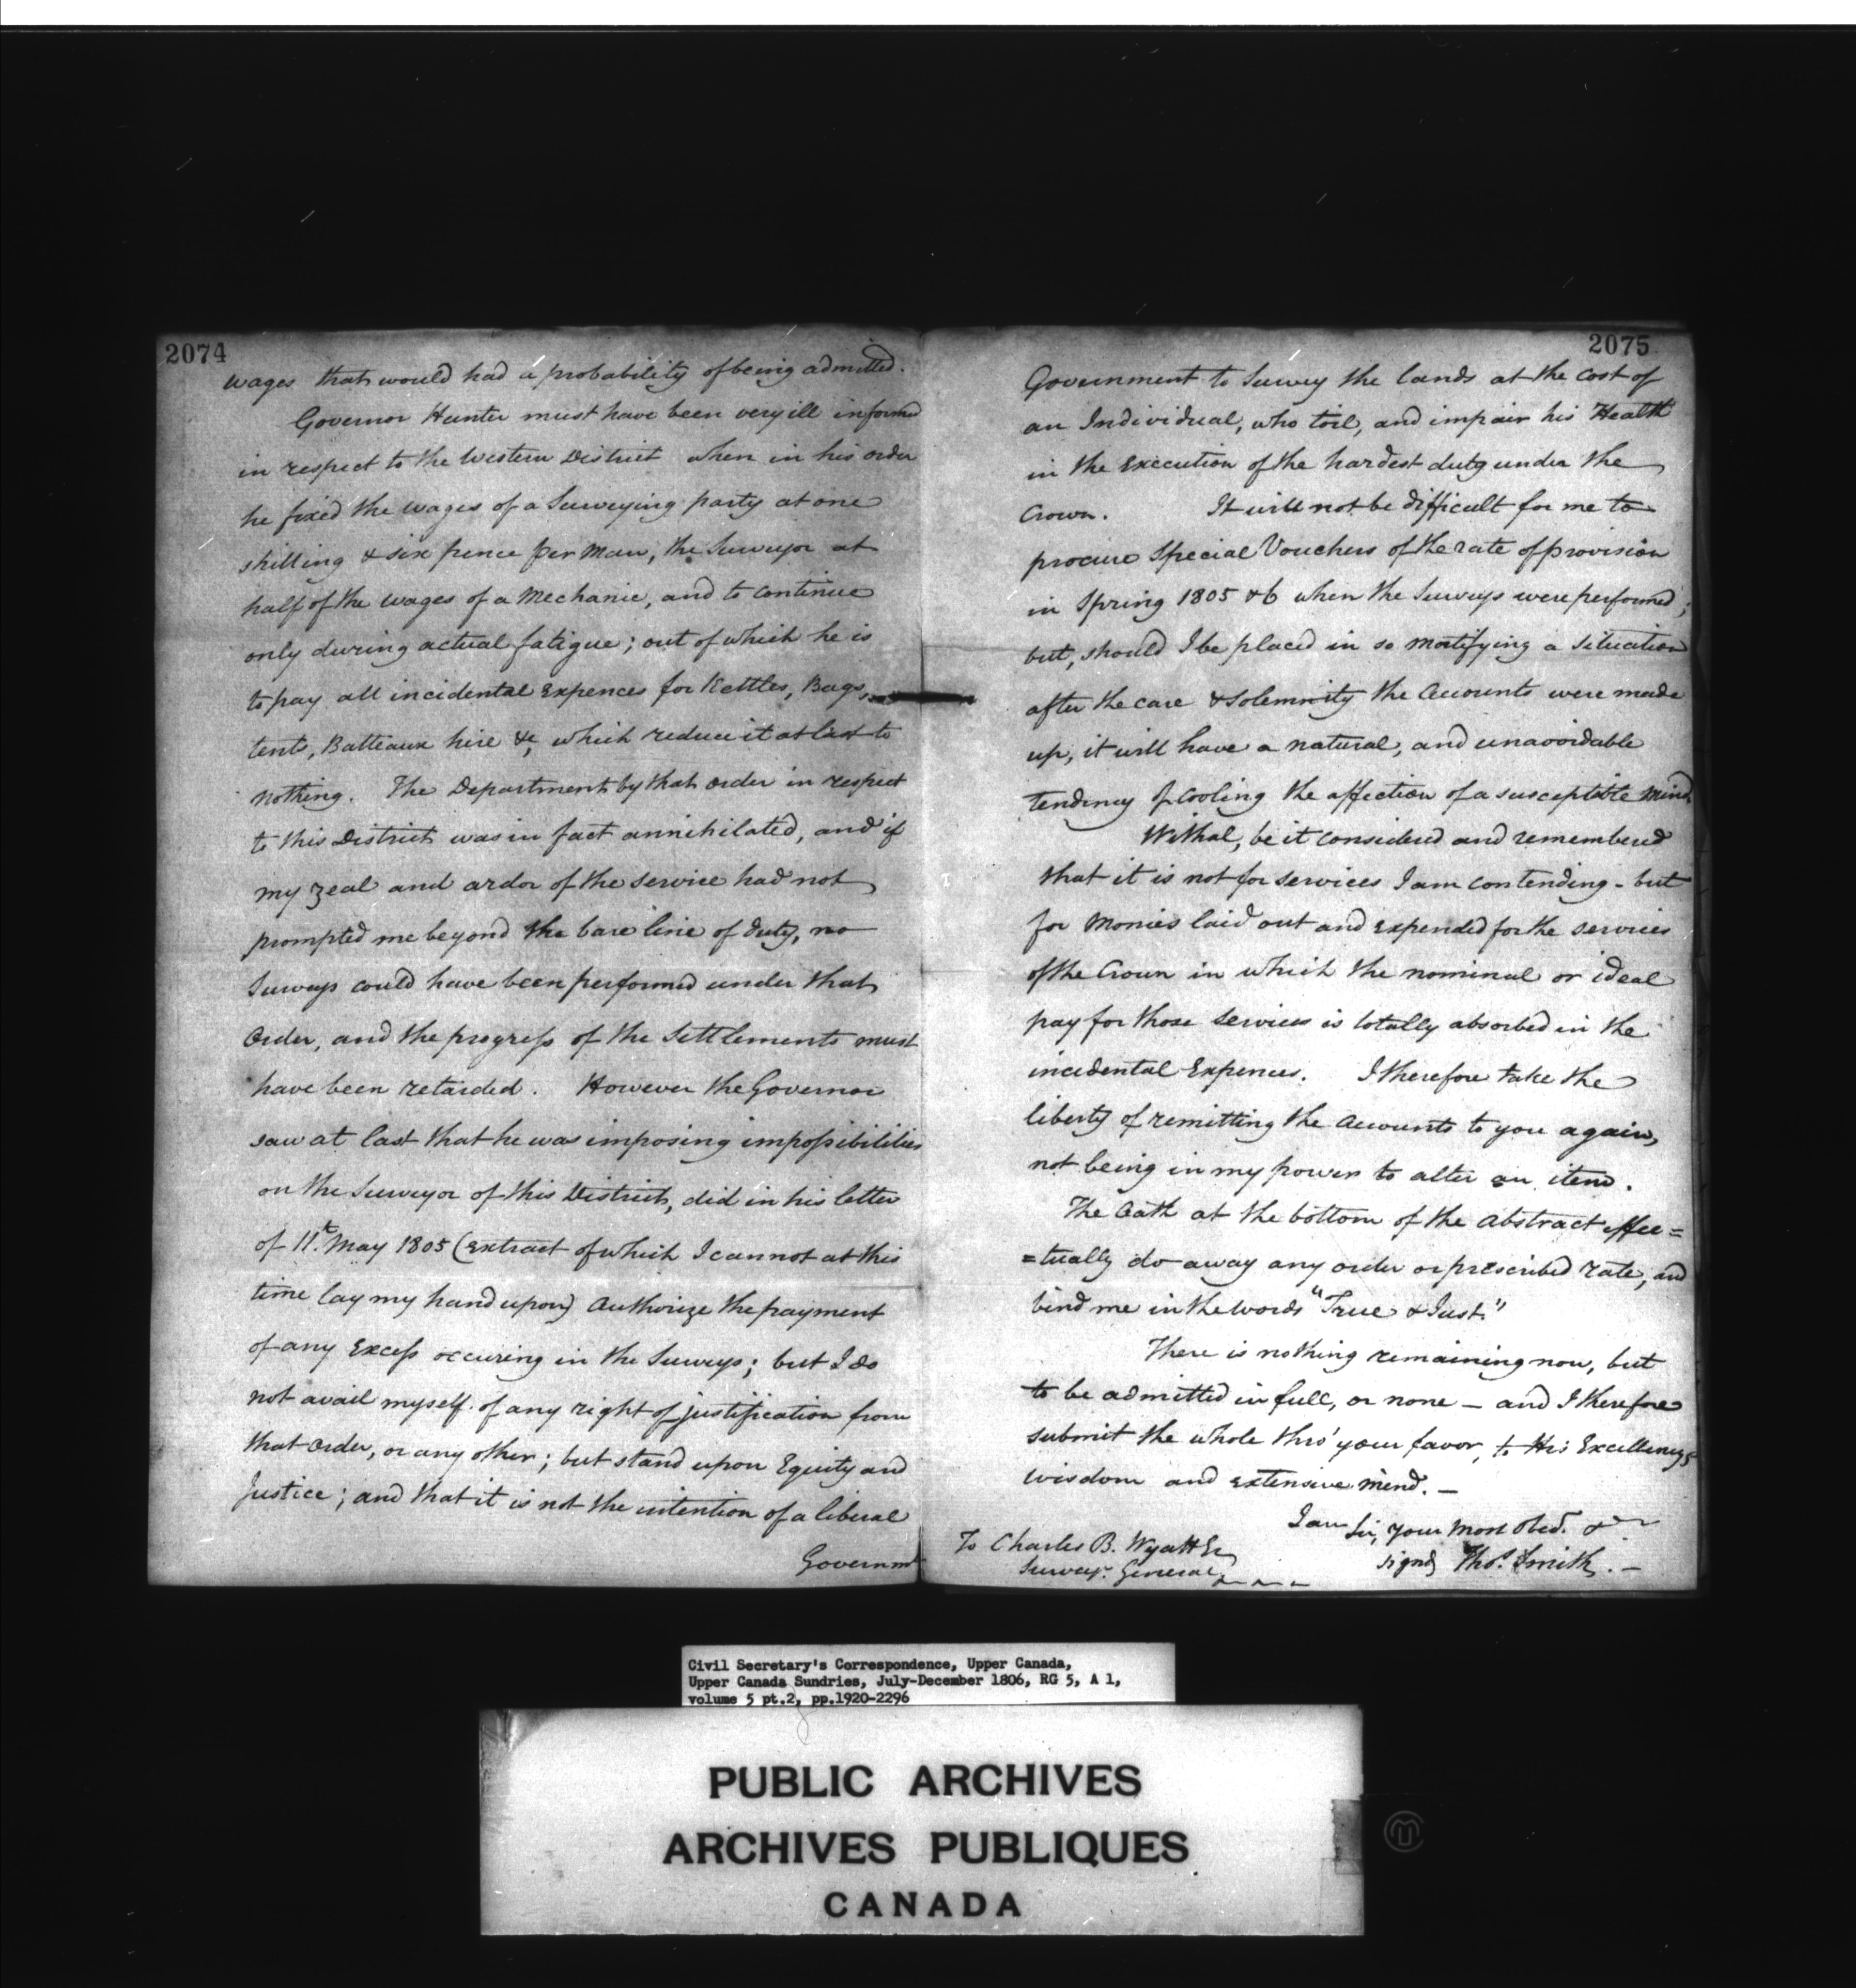 2074
wages that would had a probability of being admitted.
Governor Hunter must have been very ill informed
in respect to the Western District when in his order
he fixed the wages of a Surveying party at one
shilling & six pence per Man, the Surveyor at
half of the wages of a Mechanic, and to continue
only during actual fatigue; out of which he is
to pay all incidental Expences for Kettles, Bags,
tents, Batteaux hire &c, which reduce it at last to
nothing. The Department by that order in respect
to this District was in fact annihilated, and if
my zeal and ardor of the service had not
prompted me beyond the bare line of duty, no
Surveys could have been performed under that
Order, and the progress of the Settlements must
have been retarded. However the Governor
saw at last that he was imposing impossibilities
on the Surveyor of this District, did in his letter
of 11th May 1805 (extract of which I cannot at this
time lay my hand upon) Authorize the payment
of any Excess occuring in the Surveys; but I do
not avail myself of any right of justification from
that Order, or any other; but stand upon Equity and
Justice; and that it is not the intention of a liberal
Governmt
2075
Government to Survey the lands at the cost of
an Individual, who toil, and impair his Health
in the Execution of the hardest duty under the
Crown. It will not be difficult for me to
procure Special Vouchers of the rate of provision
in Spring 1805 & 6 when the Surveys were performed;
but, should I be placed in so mortifying a situation
after the care & solemnity the Accounts were made
up, it will have a natural, and unavoidable
tendency of cooling the affection of a susceptible mind.
Withal, be it considered and remembered
that it is not for services I am contending - but
for Monies laid out and expended for the services
of the Crown in which the nominal or ideal
pay for those services is totally absorbed in the
incidental Expences. I therefore take the
liberty of remitting the Accounts to you again,
not being in my power to alter an item.
The Oath at the bottom of the Abstract effec=
=tually do away any order or prescribed rate, and
bind me in the words "True & Just."
There is nothing remaining now, but
to be admitted in full, or none — and I therefore
submit the whole thro' your favor, to His Excellencys
wisdom and extensive mind. —
I am Sir, your Most Obed.t &
signd Thos. Smith. —
To Charles B. Wyatt Esqr
Surveyr. General
Civil Secretary's Correspondence, Upper Canada,
Upper Canada Sundries, July-December 1806, RG 5, A 1,
volume 5 pt.2, pp.1920-2296
PUBLIC ARCHIVES
ARCHIVES PUBLIQUES
CANADA